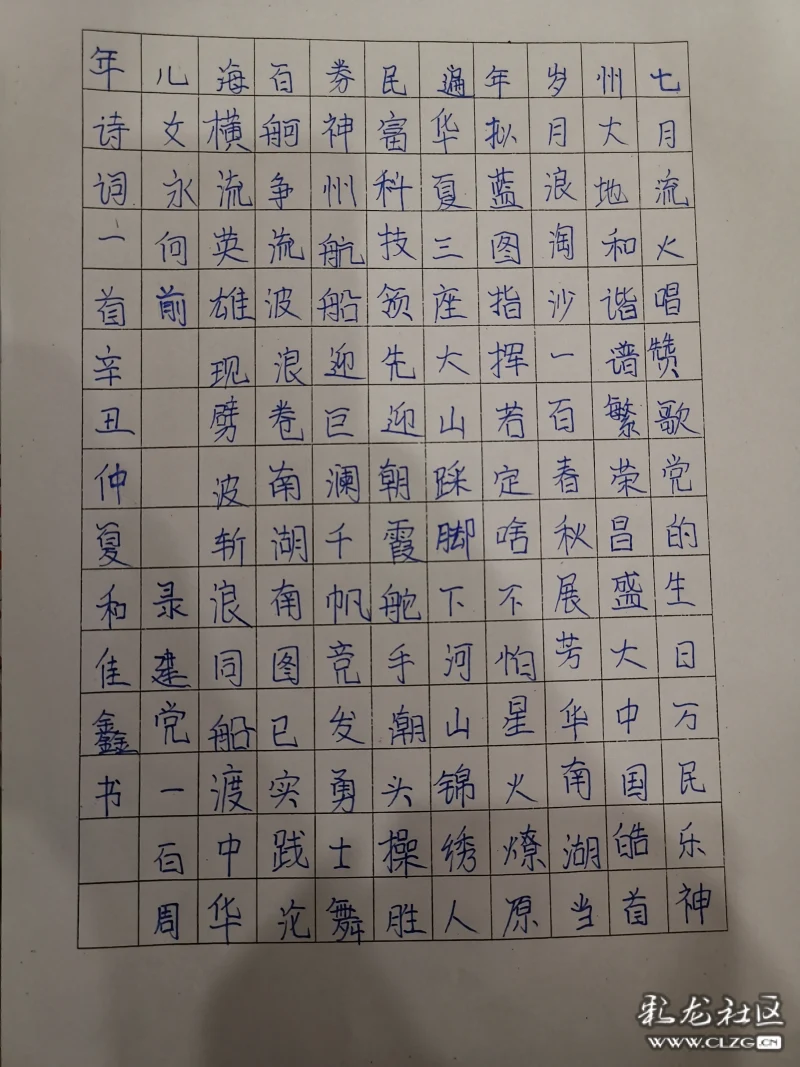 七月流火唱赞歌党的生日万民乐神
州大地和谐谱繁荣昌盛大中国皓首
岁月浪淘沙一百春秋展芳华南湖当
年拟蓝图指挥若定啥不怕星火燎原
遍华夏三座大山踩脚下河山锦绣人
民富科技领先迎朝霞舵手潮头操胜
券神州航船迎巨澜千帆竞发勇士舞
百舸争流波浪卷南湖南图已实践沧
海横流英雄现劈波斩浪同船渡中华
儿女永何前 录建党一百周
年诗词一首辛丑仲夏和佳鑫书
彩龙社区
WWW.CLZG.CN